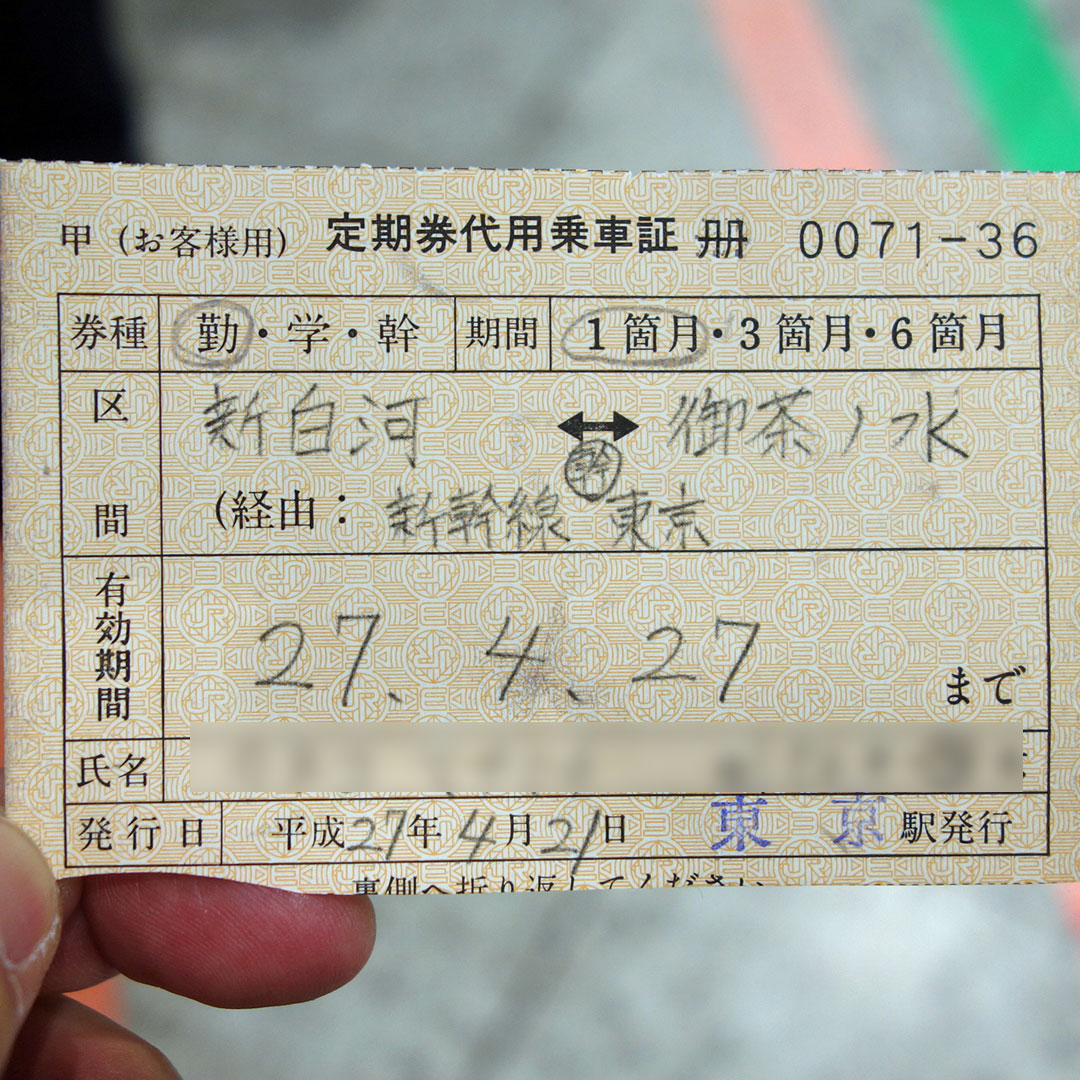 甲（お客様用） 定期券代用乗車証 冊 0071-36
券種 勤・学・幹 期間 1箇月・3箇月・6箇月
区間 新白河 ↔ 御茶ノ水
幹
（経由：新幹線 東京
有効期間 27、4、27 まで
氏名
発行日 平成27年4月21日 東京 駅発行
裏側へ折り返してください